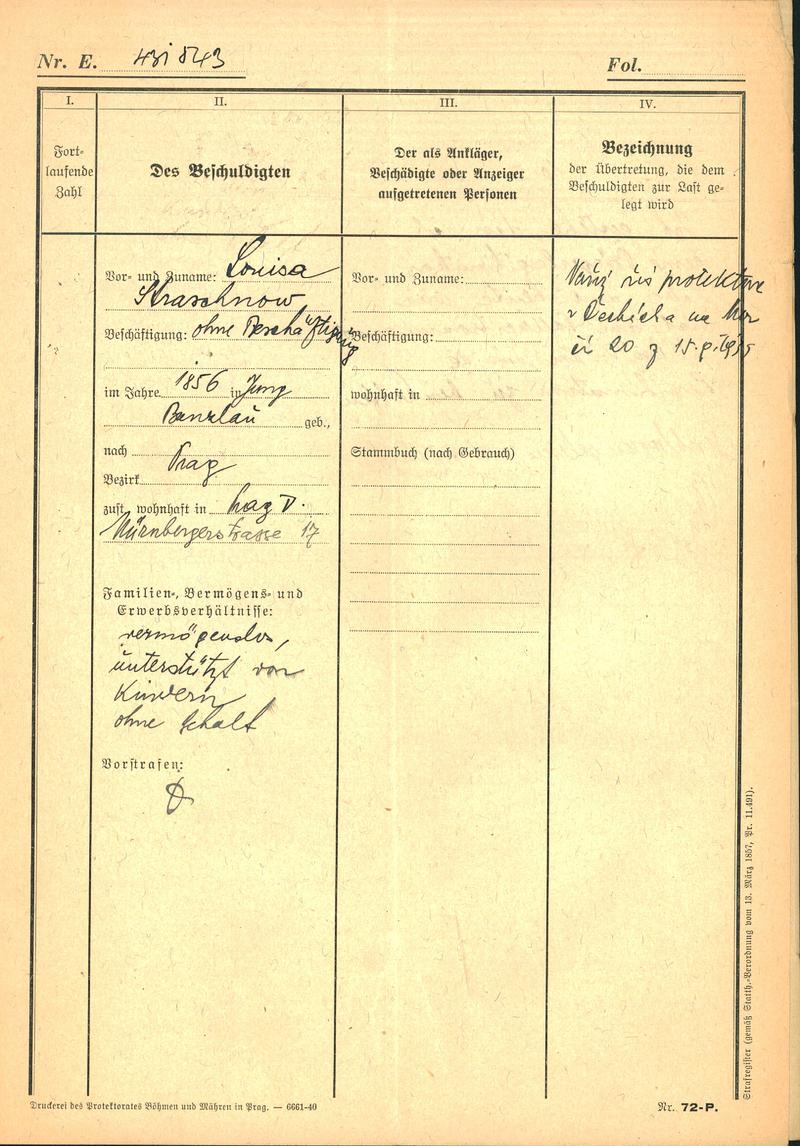 Nr. E. 431843
Fol.
I.
Fort-
laufende
Zahl
II.
Des Beschuldigten
III.
Der als Ankläger,
Beschädigte oder Anzeiger
aufgetretenen Personen
IV.
Bezeichnung
der Übertretung, die dem
Beschuldigten zur Last ge-
legt wird
Vor- und Zuname: Louisa
Straschnow
Beschäftigung: ohne Beschäftigung
im Jahre 1856 in Jung
Bunzlau geb.,
nach Prag
Bezirk
zust. wohnhaft in Prag V.
Nürnbergerstrasse 17
Familien-, Vermögens- und
Erwerbsverhältnisse:
vermögenslos,
unterstützt von
Kindern
ohne Gehalt
Vorstrafen:
Vor- und Zuname:
Beschäftigung:
wohnhaft in
Stammbuch (nach Gebrauch)
protektora
v Čechách a na Mor
čl 20 z 15.
Strafregister (gemäß Statth.-Verordnung vom 13. März 1857, Pr. 11.491).
Druckerei des Protektorates Böhmen und Mähren in Prag. — 6661-40
Nr. 72-P.